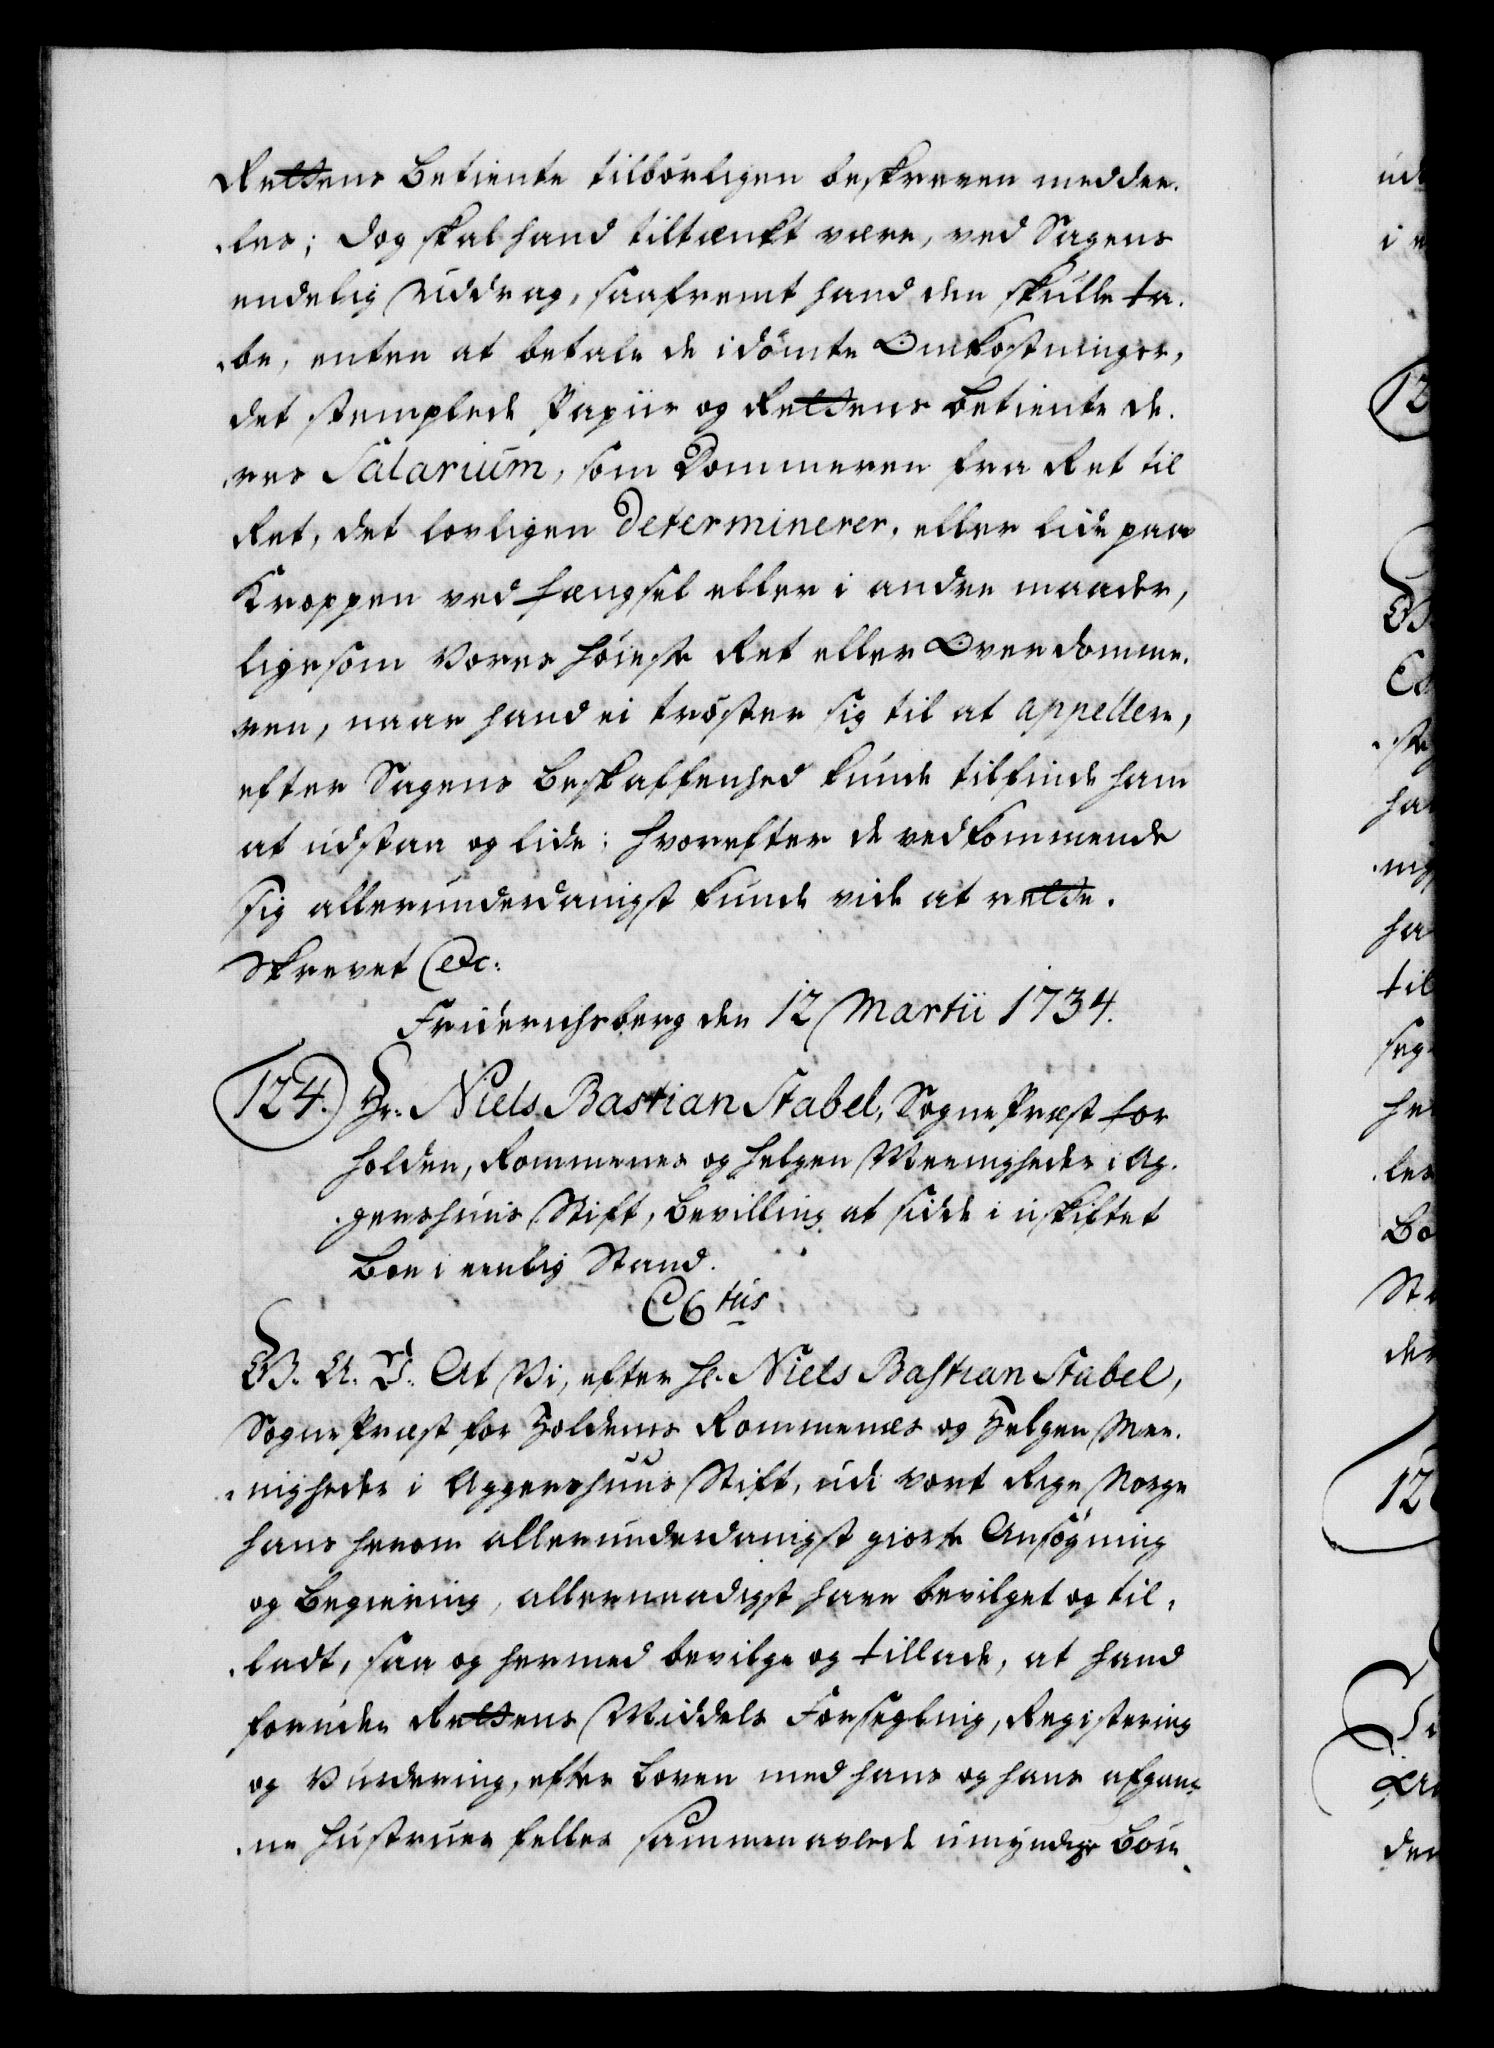 Rettens Betiente tilbörligen beskreven meddee-
-les; dog skal hand tiltænkt være, ved Sagens
endelig Uddrag, saafremt hand den skulle ta-
-be, enten at betale de idömte Omkostninger,
det stemplede Papiir og Rettens Betiente de-
-res Salarium, som Dommeren fra Ret til
Ret, det lovligen determinerer, eller lide paa
Kroppen ved Fængsel eller i andre maader,
ligesom Vores Höieste Ret eller Overdomme-
-ren, naar hand ei tröster sig til at appellere,
efter Sagens Beskaffenhed kunde tilfinde ham
at udstaa og lide; Hvorefter de vedkommende
sig allerunderdanigst kunde vide at rette.
Skrevet etc:
Friderichsberg den 12 Martii 1734.
124. Hr: Niels Bastian Stabel, SognePræst for
Holden, Rommenes og Helgen Meenigheder i Ag-
-gershuus Stift, Bevilling at sidde i uskiftet
Boe i eenlig Stand.
C6tus
G. A. V. At Vi, efter Hr. Niels Bastian Stabel,
SognePræst for Holdens Rommenæs og Helgen Mee-
-nigheder i Aggershuus Stift, udi vort Rige Norge
hans herom allerunderdanigst giorte Ansögning
og Begiering, allernaadigst have bevilget og til-
-ladt, saa og hermed bevilge og tillade, at hand
foruden Rettens Middels Forsegling, Registering
og Vurdering, efter Loven med hans og hans afgang-
-ne Hustrues felles sammenavlede umyndige Börn